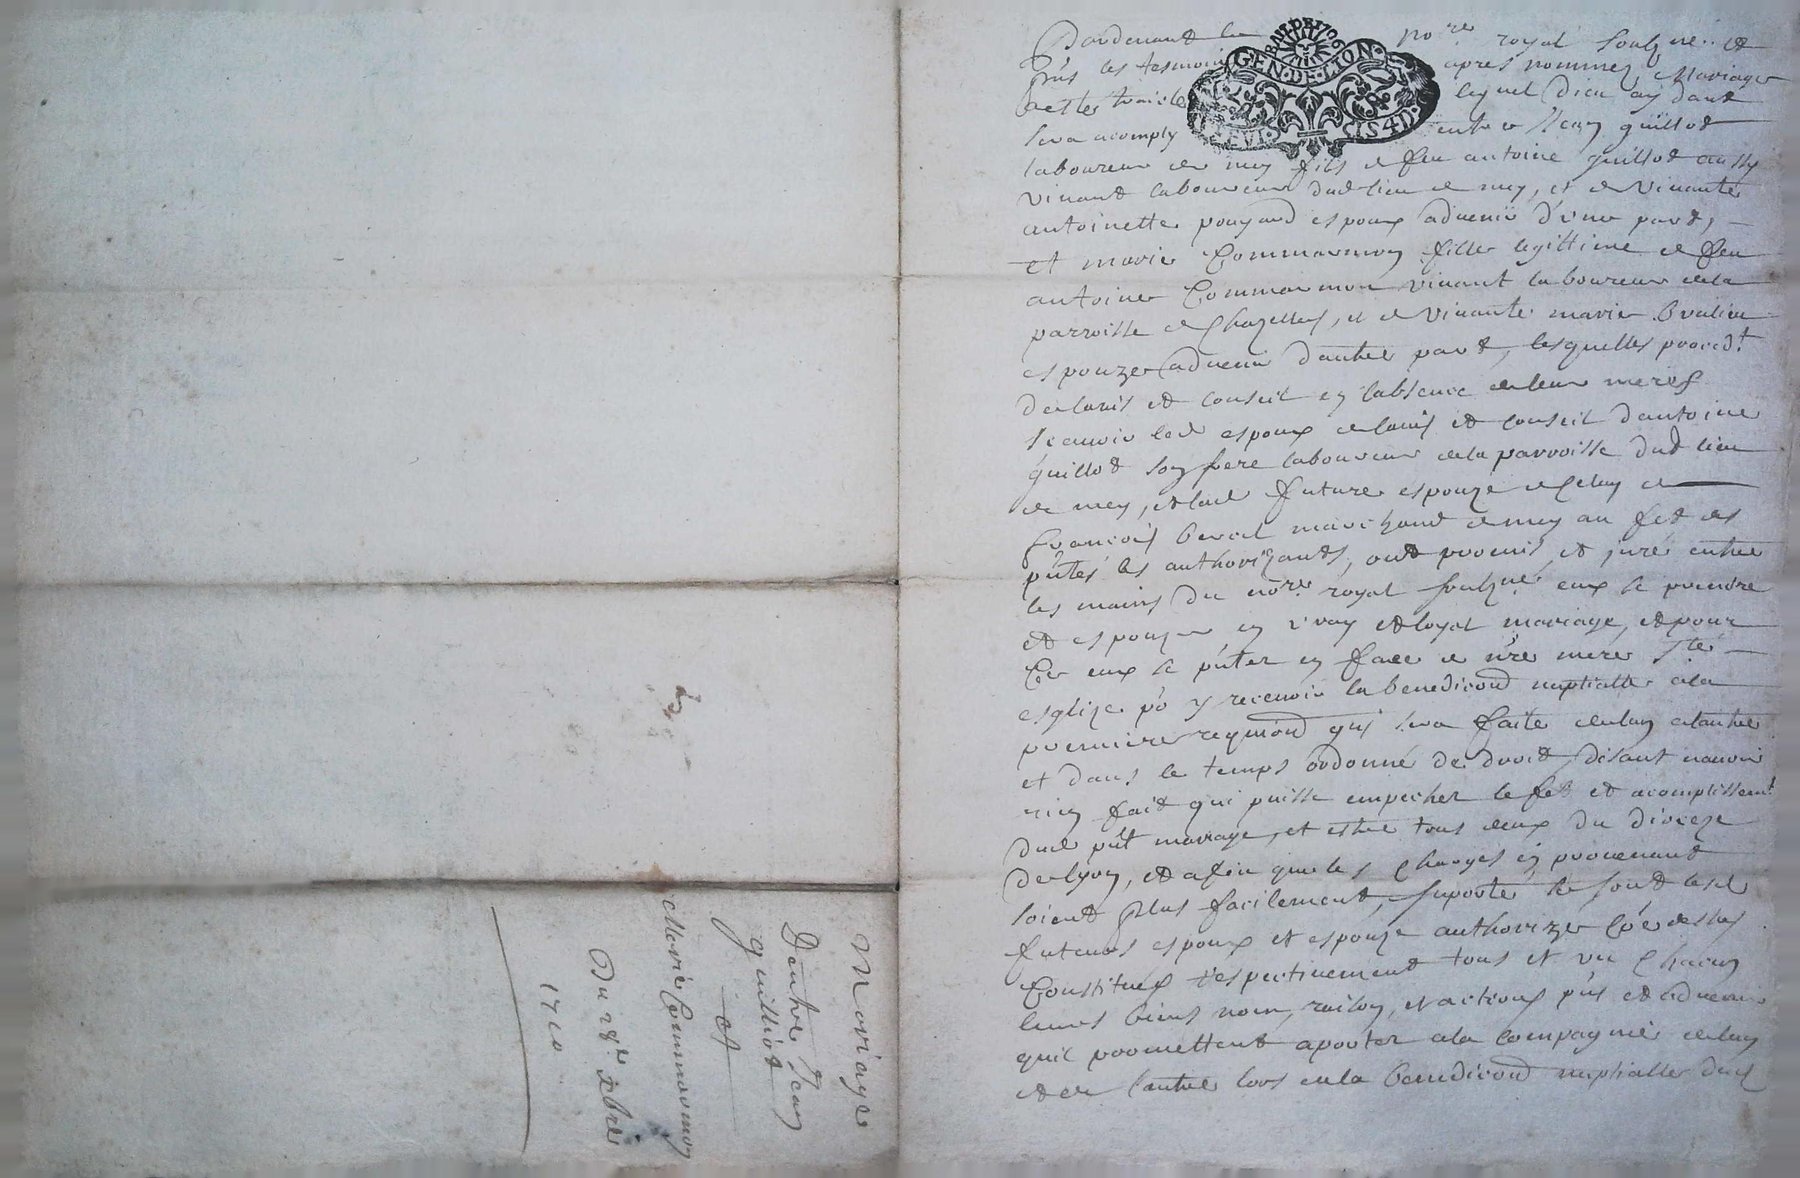 Pardevant le no.re royal soubz.né et
pñs les tesmoins apres nommez, Mariage
lequel Dieu aydant
sera acomply entre Jean guillot
laboureur de mey fils de feu antoine guillot
vivant laboureur dud lieu de mey, et de vivante
antoinette poyard espoux advenir d'une part,
et marie Commarmon fille legittime de feu
antoine Commarmon vivant laboureur dela
parroisse de Chazelles, et de vivante marie
espouze advenir d'autre part, lesquelles proced.t
de lavis et conseil en labsence de leur meres
scavoir led espoux de lavis et conseil dantoine
guillot son frere laboureur dela parroisse dud lieu
de mey, et lad future espouze de Celuy de
françois marchand de mey au fet des
pñtes les authorizants, ont promis et juré entre
les mains du no.re royal soubz.né eux se prendre
et espouzer en vray et loyal mariage, et pour
Ce eux se pñter en face de nre mere Ste
esglize po y recevoir la benediond nuptialle ala
premiere requiond qui sera faite de lun a lautre
et dans le temps ordonné de droit, disant navoir
rien fait qui puisse empecher le fet et acomplissem.t
dud pñt mariage, et estre tous deux du dioceze
de lyon, et afin que les Charges en provenant
soient plus facilement suporté se sont lesd
futeurs espoux et espouze authorizez Coe dessus
Constituez respectivement tous et un Chacun
leurs biens nom, raison, et actions pñs et advenir
quil promettent aporter ala Compagnie de lun
et de lautre lors de la benediond nuptialle dud
BAIL DE 1706
GEN·DE·LION·
IS4D·
Mariage
Dentre Jean
guilliot
et
Marie Commarmon
Du 28e Xbre
1710